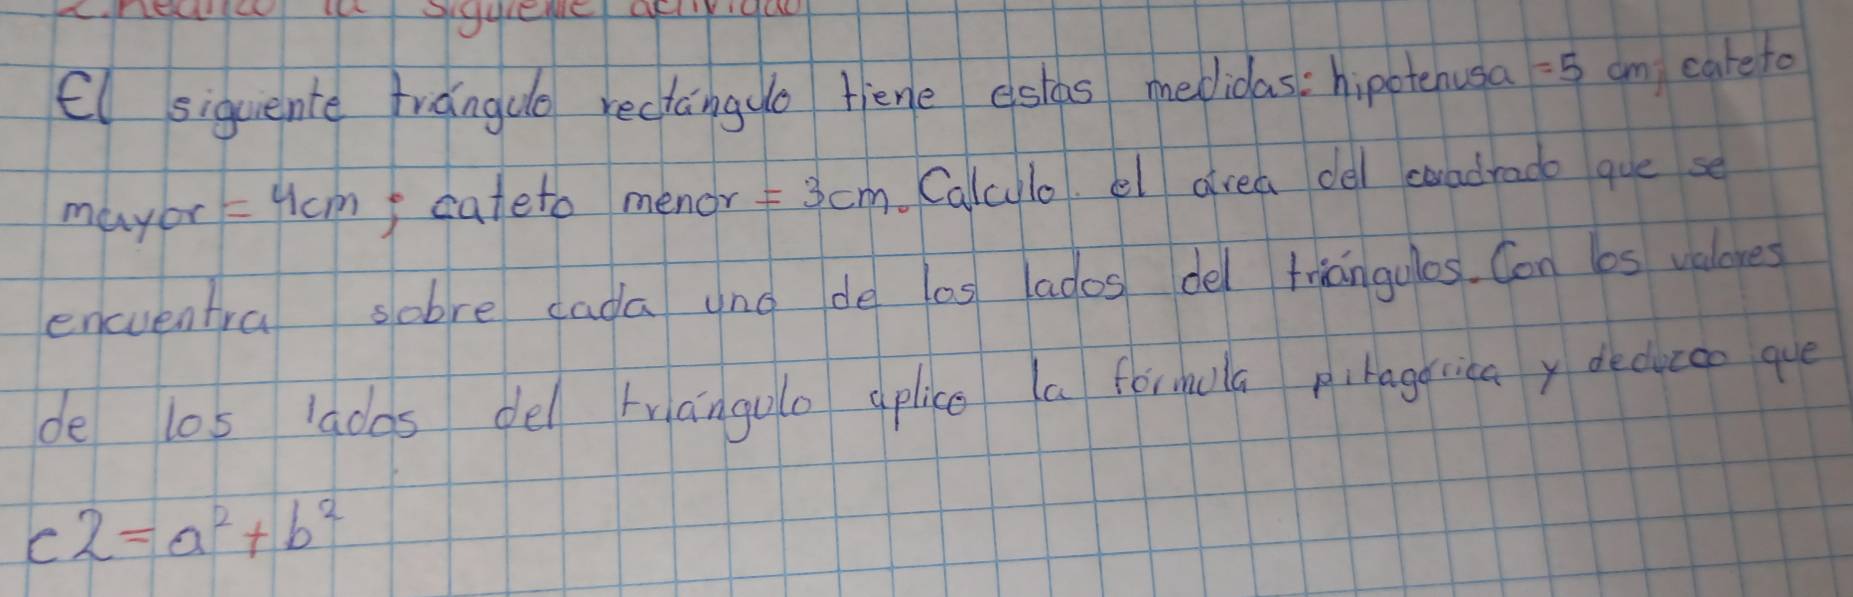 2. Realizo la siguiente actividad
El siguiente triángulo rectángulo tiene estas medidas: hipotenusa = 5 cm; cateto
mayor = 4cm; cateto menor = 3cm. Calculo el área del cuadrado que se
encuentra sobre cada uno de los lados del triángulos. Con los valores
de los lados del triángulo aplico la fórmula pitagórica y deduzco que
c2 = a² + b²